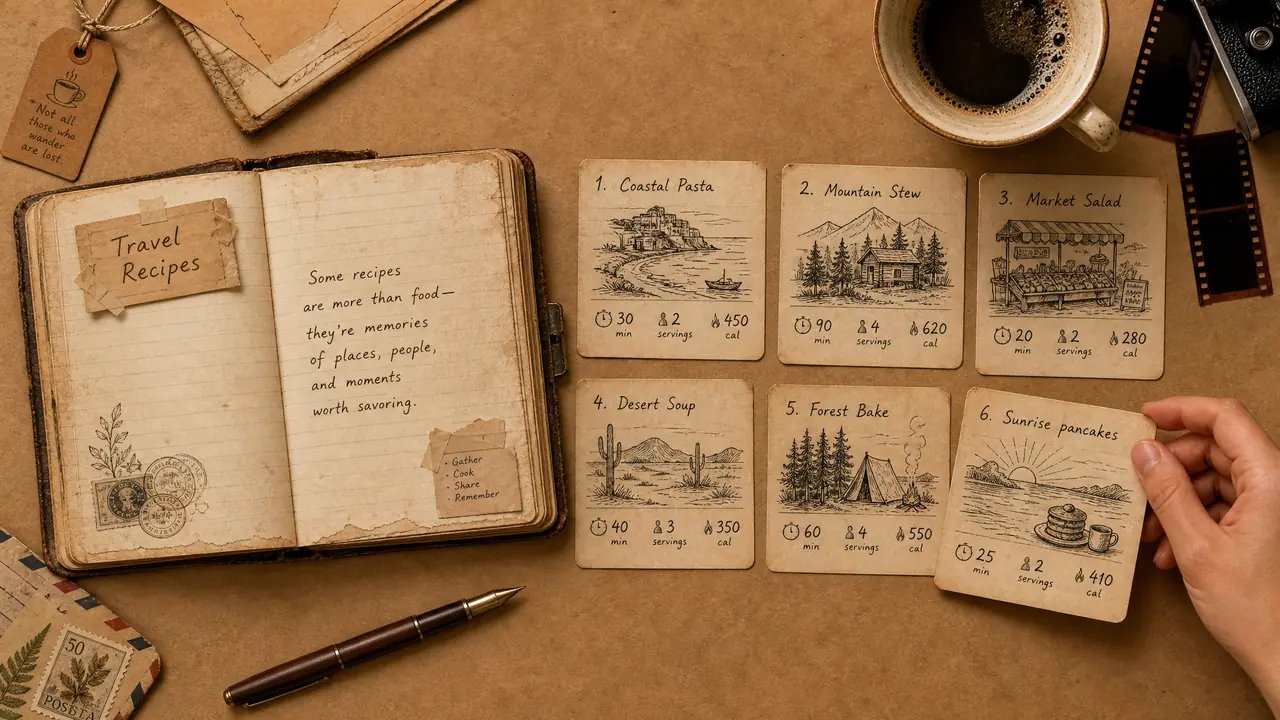 "Not all
those who
wander
are lost.
Travel
Recipes
Some recipes
are more than food—
they're memories
of places, people,
and moments
worth savoring.
- Gather
- Cook
- Share
- Remember
1. Coastal Pasta
30 min
2 servings
450 cal
2. Mountain Stew
90 min
4 servings
620 cal
3. Market Salad
20 min
2 servings
280 cal
4. Desert Soup
40 min
3 servings
350 cal
5. Forest Bake
60 min
4 servings
550 cal
6. Sunrise pancakes
25 min
2 servings
410 cal
50